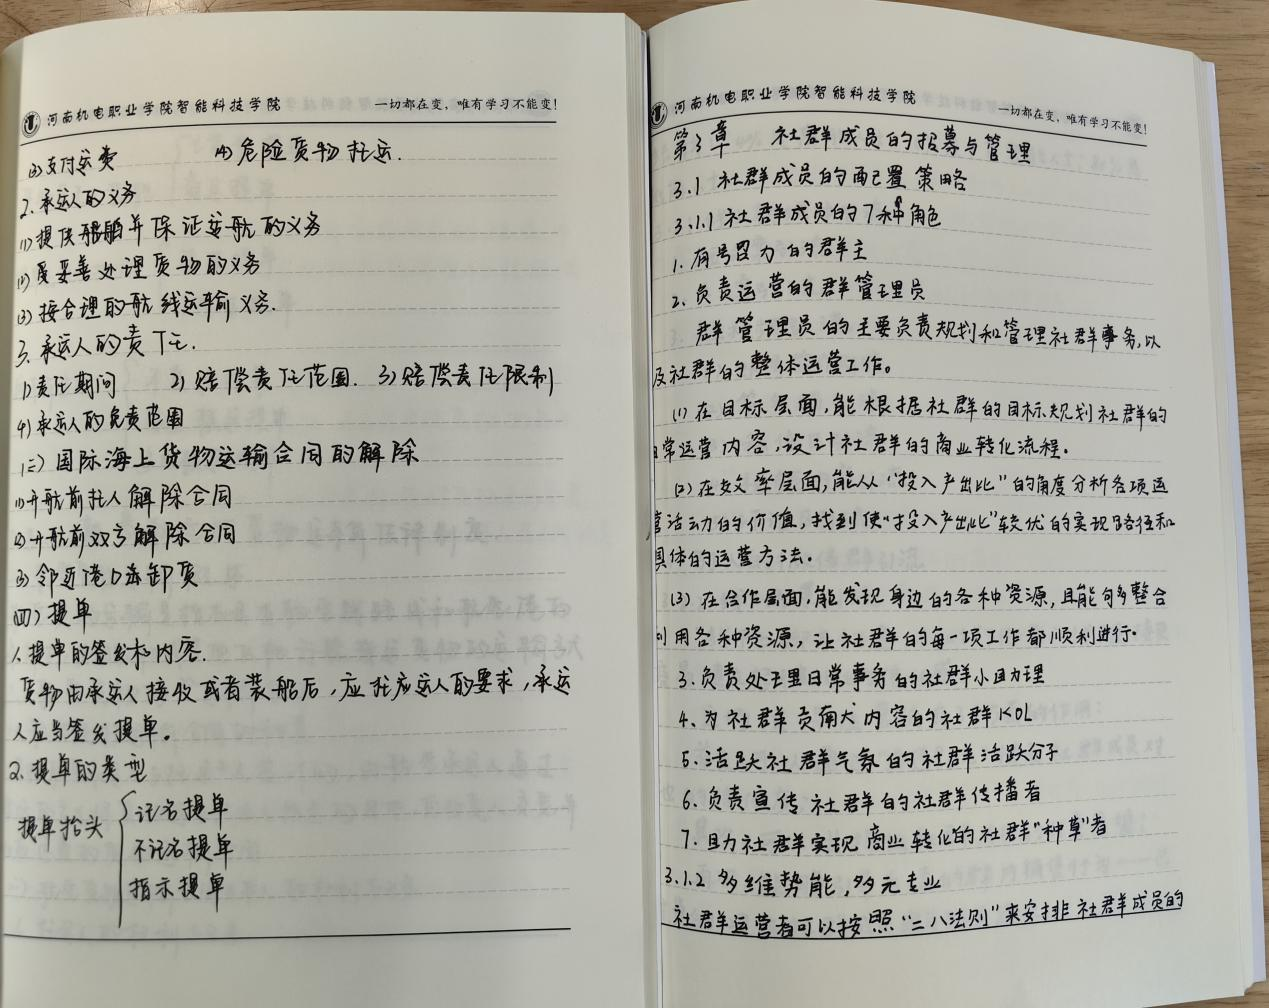 河南机电职业学院智能科技学院 一切都在变，唯有学习不能变！
(3)支付运费 (4)危险货物托运.
2.承运人的义务
(1)提供船舶并保证适航的义务
(2)妥善处理货物的义务
(3)按合理的航线运输义务.
3.承运人的责任.
1)责任期间 2)赔偿责任范围. 3)赔偿责任限制
4)承运人的免责范围
(三)国际海上货物运输合同的解除
(1)开航前托人解除合同
(2)开航前双方解除合同
(3)邻近港口卸货
(四)提单
1.提单的签发和内容.
货物由承运人接收或者装船后，应托运人的要求，承运
人应当签发提单。
2.提单的类型
提单抬头
记名提单
不记名提单
指示提单
河南机电职业学院智能科技学院 一切都在变，唯有学习不能变！
第3章 社群成员的招募与管理
3.1 社群成员的配置策略
3.1.1 社群成员的7种角色
1.有号召力的群主
2.负责运营的群管理员
群管理员的主要负责规划和管理社群事务,以
及社群的整体运营工作。
(1)在目标层面,能根据社群的目标规划社群的
日常运营内容,设计社群的商业转化流程.
(2)在效率层面,能从“投入产出比”的角度分析各项运
营活动的价值,找到使“投入产出比”较优的实现路径和
具体的运营方法.
(3)在合作层面,能发现身边的各种资源,且能够整合
利用各种资源,让社群的每一项工作都顺利进行.
3.负责处理日常事务的社群小助理
4、为社群贡献内容的社群KOL
5.活跃社群气氛的社群活跃分子
6.负责宣传社群的社群传播者
7.助力社群实现商业转化的社群“种草”者
3.1.2 多维势能,多元专业
社群运营者可以按照“二八法则”来安排社群成员的